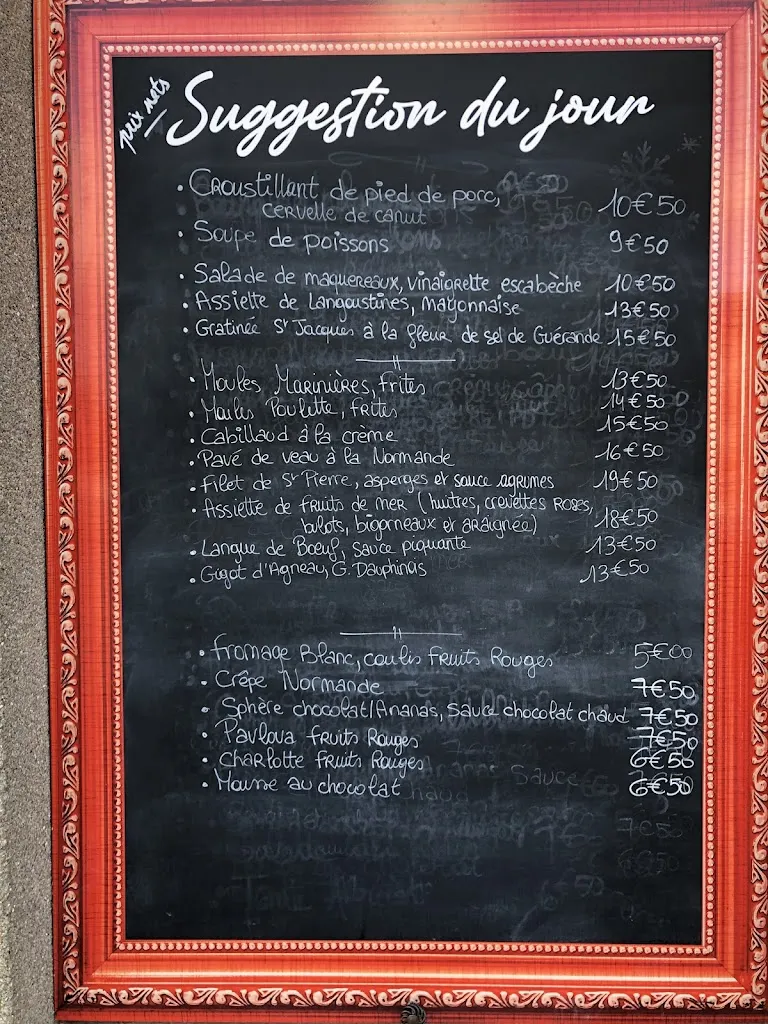 prix nets
Suggestion du jour
• Croustillant de pied de porc,
cervelle de canut 10€50
• Soupe de poissons 9€50
• Salade de maquereaux, vinaigrette escabèche 10€50
• Assiette de Langoustines, Mayonnaise 13€50
• Gratinée St Jacques à la fleur de sel de Guérande 15€50
• Moules Marinières, frites 13€50
• Moules Poulette, frites 14€50
• Cabillaud à la crème 15€50
• Pavé de veau à la Normande 16€50
• Filet de St Pierre, asperges et sauce agrumes 19€50
• Assiette de fruits de mer (huitres, crevettes roses,
bulots, bigorneaux et araignée) 18€50
• Langue de Boeuf, sauce piquante 13€50
• Gigot d'Agneau, G. Dauphinois 13€50
• Fromage Blanc, coulis Fruits Rouges 5€00
• Crêpe Normande 7€50
• Sphère chocolat/Ananas, sauce chocolat chaud 7€50
• Pavlova fruits Rouges 7€50
• Charlotte Fruits Rouges 6€50
• Mousse au chocolat 6€50